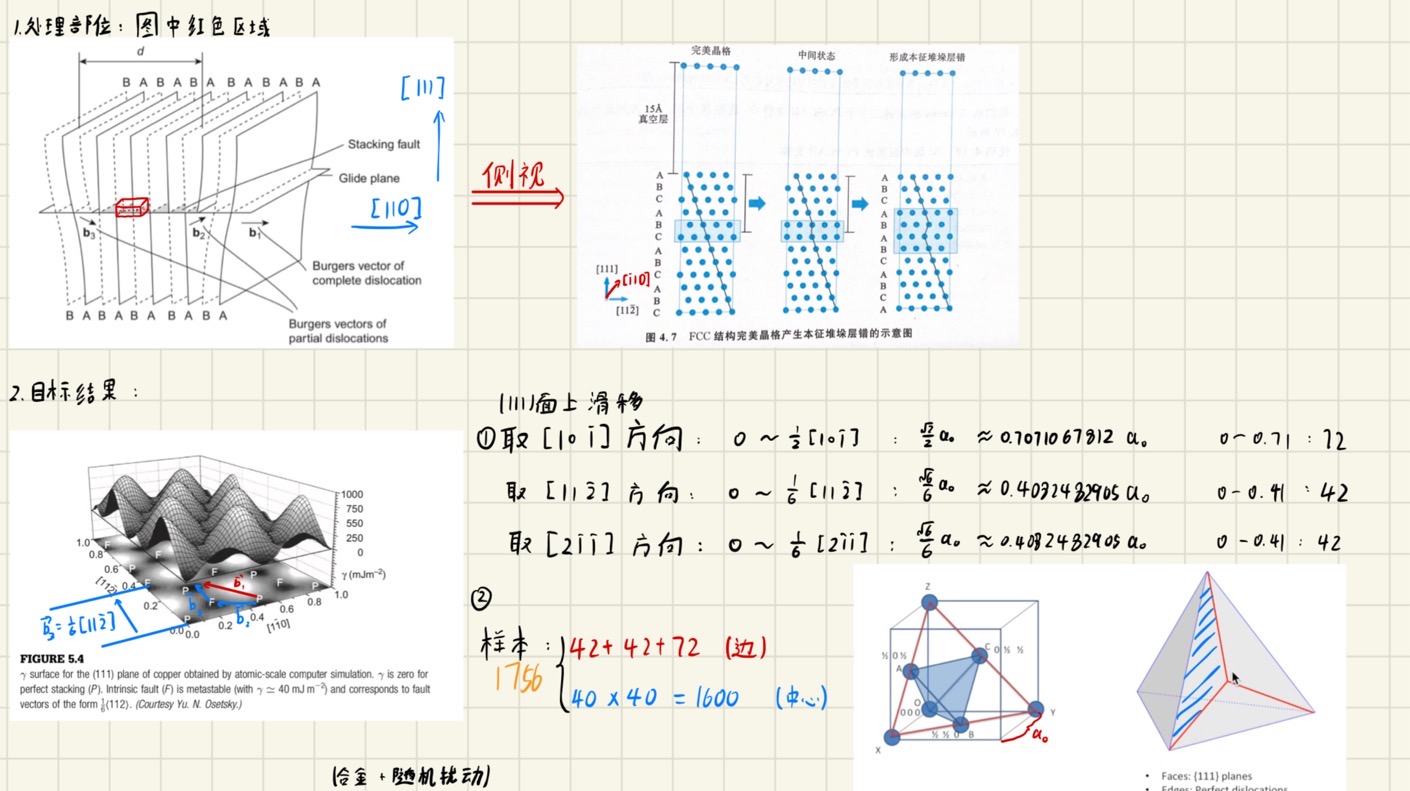 1.处理部位：图中红色区域
d
B A B A B A B A B A B A
[111]
Stacking fault
Glide plane
[110]
b₃
b₂
b₁
Burgers vector of
complete dislocation
B A B A B A B A B A
Burgers vectors of
partial dislocations
侧视
完美晶格
中间状态
形成本征堆垛层错
15Å
真空层
A
B
C
A
B
C
A
B
C
A
B
C
A
B
C
A
B
A
B
C
A
B
C
A
[111]
[1̄10]
[112̄]
图 4.7 FCC 结构完美晶格产生本征堆垛层错的示意图
2.目标结果：
1000
750
500
250
0
γ (mJm⁻²)
1.0
0.8
0.6
0.4
0.2
0.0
[112̄]
0.0
0.2
0.4
0.6
0.8
1.0
[1̄10]
F F F P P F P P F P P
b₁
b₂
b₃ = 1/6[112̄]
FIGURE 5.4
γ surface for the (111) plane of copper obtained by atomic-scale computer simulation. γ is zero for
perfect stacking (P). Intrinsic fault (F) is metastable (with γ ≃ 40 mJ m⁻²) and corresponds to fault
vectors of the form 1/6⟨112⟩. (Courtesy Yu. N. Osetsky.)
(111)面上滑移
①取 [101̄] 方向： 0 ~ 1/2[101̄] ： √2/2 a₀ ≈ 0.7071067812 a₀ 0-0.71 : 72
取 [112̄] 方向： 0 ~ 1/6[112̄] ： √6/6 a₀ ≈ 0.4082482905 a₀ 0-0.41 : 42
取 [21̄1̄] 方向： 0 ~ 1/6[21̄1̄] ： √6/6 a₀ ≈ 0.4082482905 a₀ 0-0.41 : 42
②
样本：
1756
42+42+72 (边)
40×40 = 1600 (中心)
(合金+随机扰动)
Z
½ 0 ½
A
C 0 ½ ½
O
0 0 0
½ ½ 0 B
Y
X
a₀
• Faces: {111} planes
• Edges: Perfect dislocations